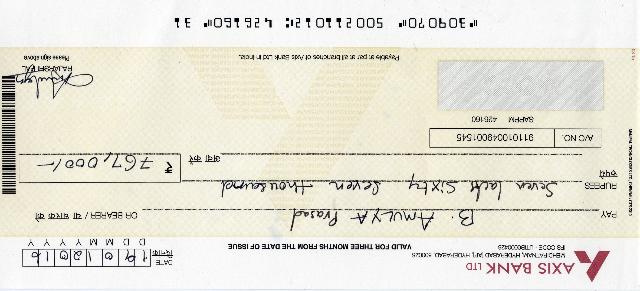 AXIS BANK LTD
MEHDIPATNAM, HYDERABAD [AP], HYDERABAD, 500028
IFS CODE - UTIB0000429
VALID FOR THREE MONTHS FROM THE DATE OF ISSUE
DATE
दिनांक
19012016
D D M M Y Y Y Y
PAY B. AMULYA Prasad OR BEARER / या धारक को
RUPEES Seven lach sixty seven thousand
रुपये
अदा करें ₹ 767,000/-
A/C NO. 911010049001545
SAPPM 426160
Payable at par at all branches of Axis Bank Ltd in India.
Please sign above
"309070" 500211012: 426160" 31